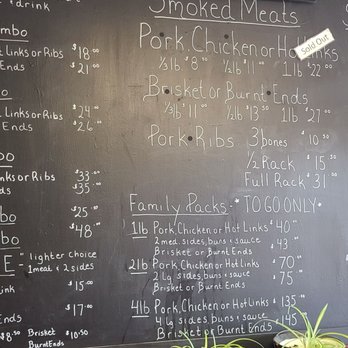 + drink
mbo
t Links or Ribs $18.00
Ends $21.00
mbo
Links or Ribs $24.00
Ends $26.00
bo
nks or Ribs $33.00
nds $35.00
bo $25.00
bo $48.00
E" lighter choice
1 meat & 2 sides
ink $15.00
Ends $17.00
$8.50 Brisket $10.50
Burnt Ends
Smoked Meats
Pork, Chicken or Hot Links
Sold Out
1/3 lb $8.00 1/2 lb $11.00 1 lb $22.00
Brisket or Burnt Ends
1/3 lb $11.00 1/2 lb $13.50 1 lb $27.00
Pork Ribs 3 bones $10.50
1/2 Rack $15.50
Full Rack $31.00
Family Packs: *TO GO ONLY*
1lb Pork, Chicken or Hot Links $40.00
2 med. sides, buns & sauce
Brisket or Burnt Ends $43.00
2lb Pork, Chicken or Hot Links $70.00
2 Lg sides, buns & sauce
Brisket or Burnt Ends $75.00
4lb Pork, Chicken or Hot Links $135.00
4 Lg sides, buns & sauce
Brisket or Burnt Ends $145.00